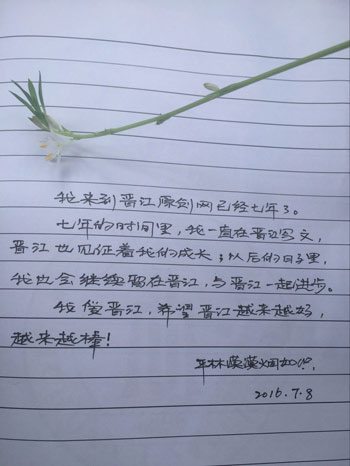 我来到晋江原创网已经七年了。
七年的时间里，我一直在晋江写文，
晋江也见证着我的成长，以后的日子里，
我也会继续留在晋江，与晋江一起进步。
我爱晋江，希望晋江越来越好，
越来越棒！
平林漠漠烟如织
2016.7.8